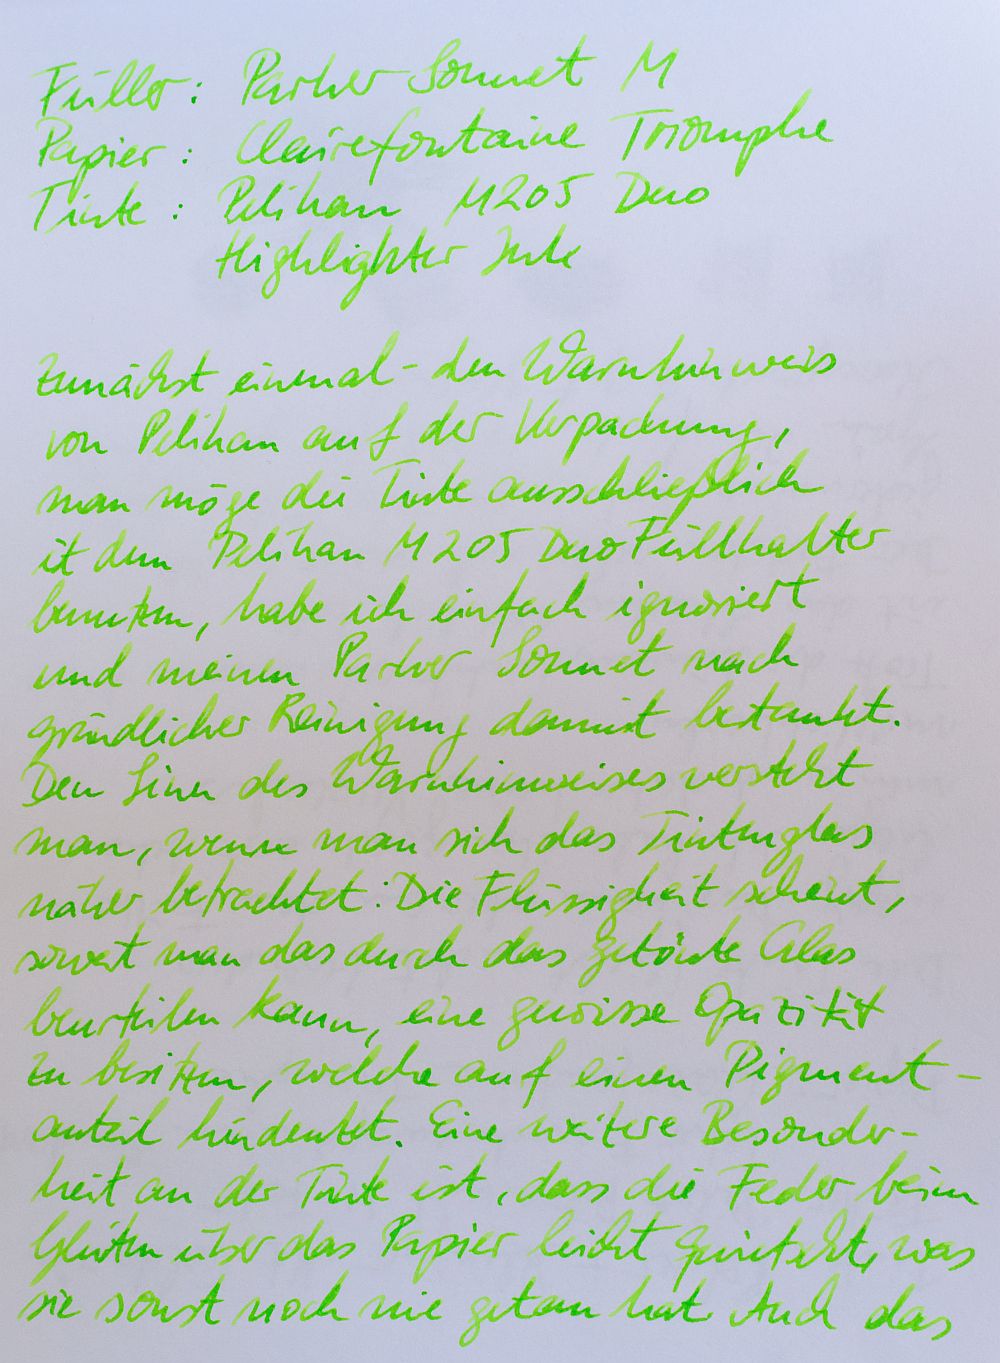 Füller: Parker Sonnet M
Papier: Clairefontaine Triomphe
Tinte: Pelikan M205 Duo
Highlighter Ink
Zunächst einmal - den Warnhinweis
von Pelikan auf der Verpackung,
man möge die Tinte ausschließlich
it dem Pelikan M205 Duo Füllhalter
benutzen, habe ich einfach ignoriert
und meinen Parker Sonnet nach
gründlicher Reinigung damit betankt.
Den Sinn des Warnhinweises versteht
man, wenn man sich das Tintenglas
näher betrachtet: Die Flüssigkeit scheint,
soweit man das durch das getönte Glas
beurteilen kann, eine gewisse Opazität
zu besitzen, welche auf einen Pigment-
anteil hindeutet. Eine weitere Besonder-
heit an der Tinte ist, dass die Feder beim
Gleiten über das Papier leicht quietscht, was
sie sonst noch nie getan hat. Auch das